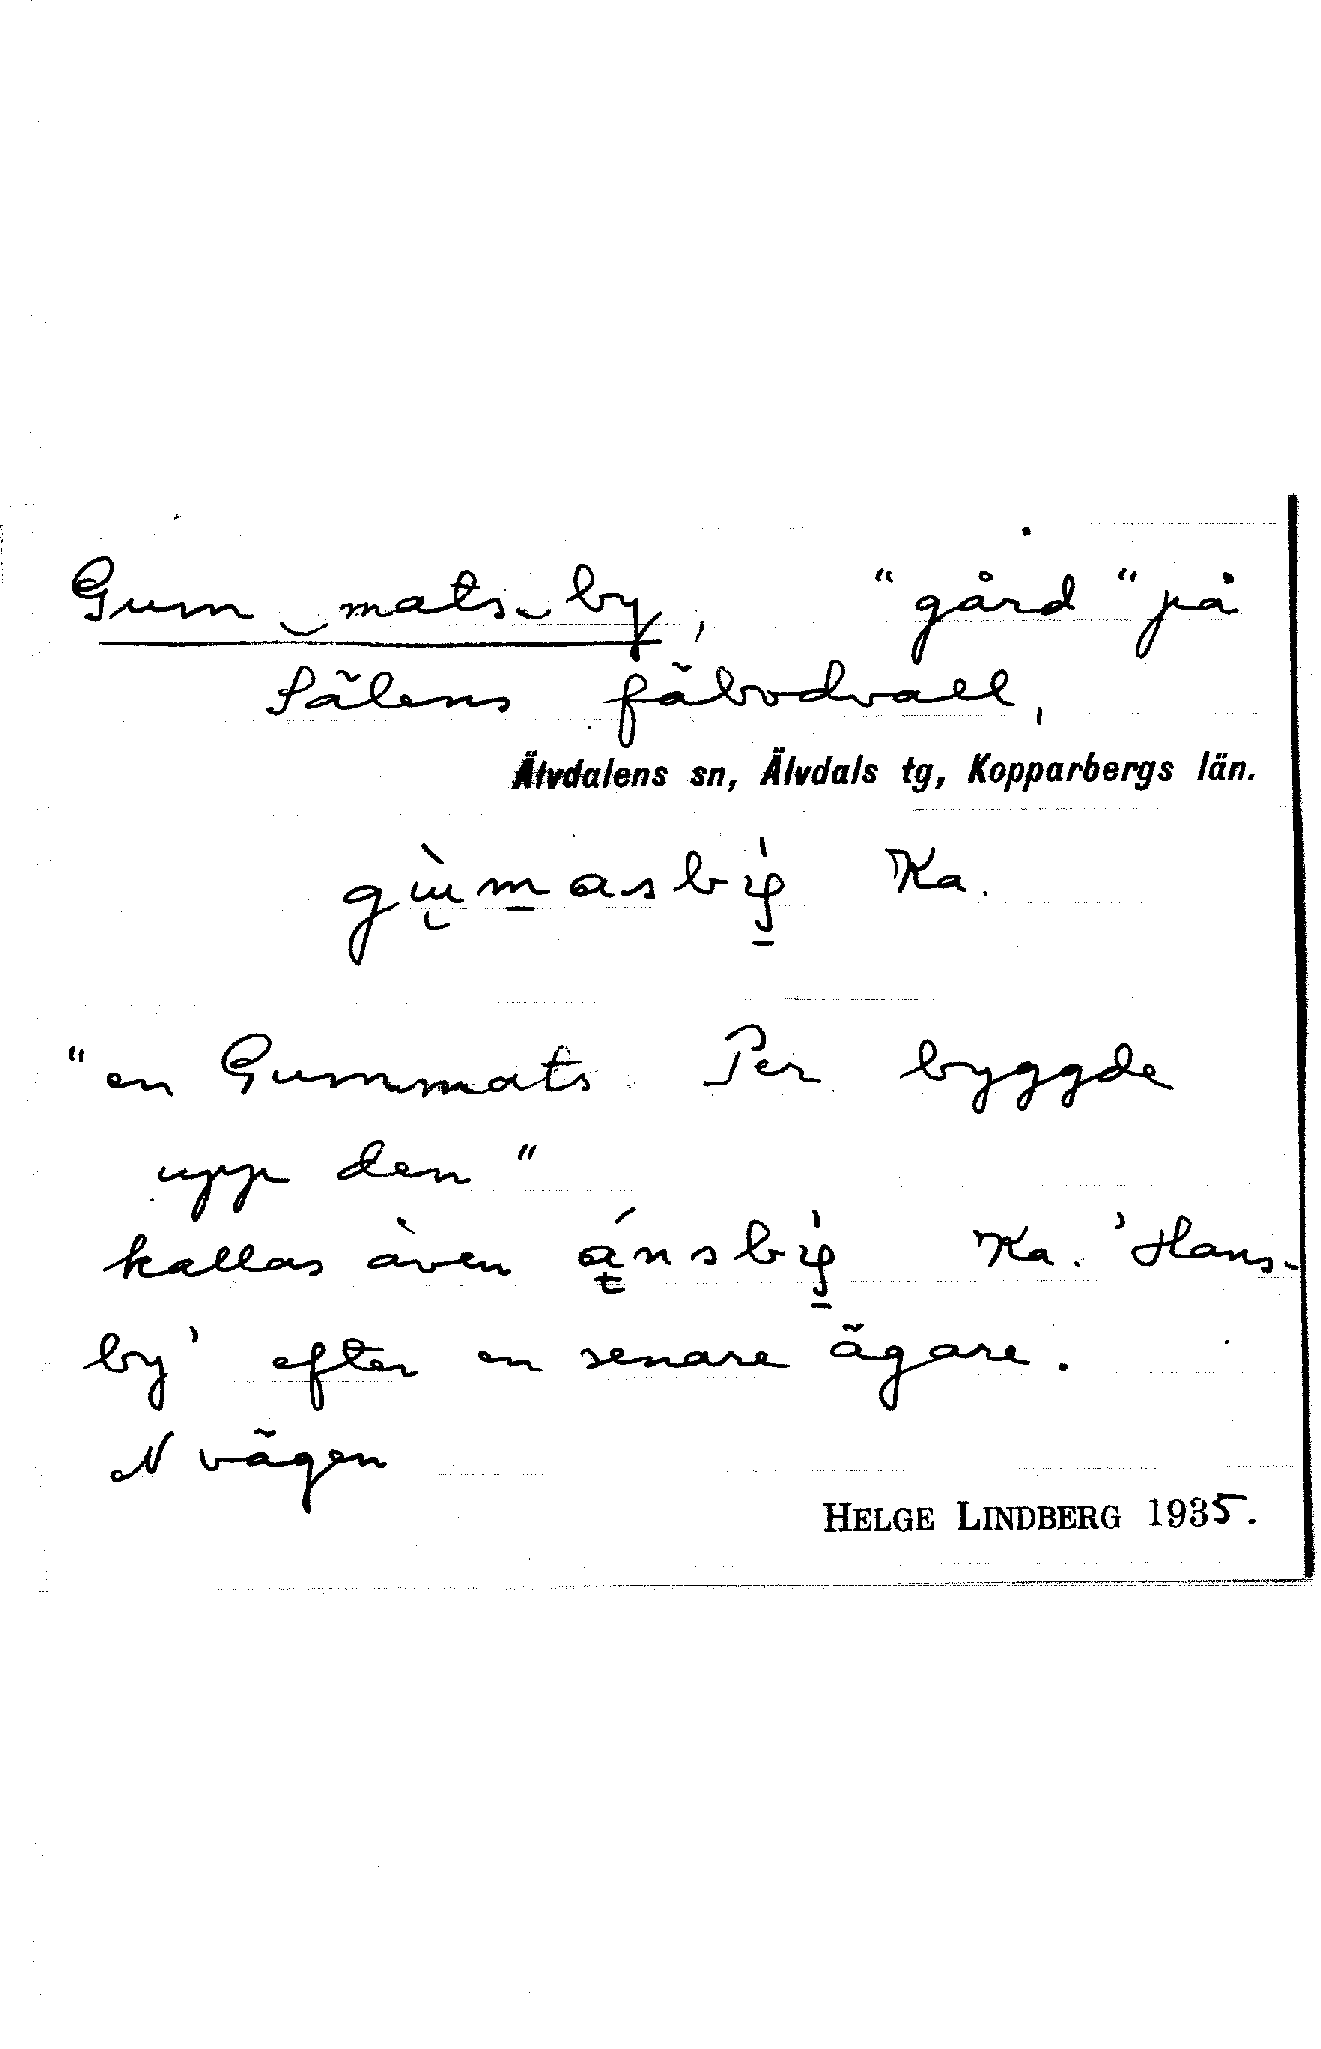 Gum‿mats‿by, "gård" på
Sälens fäbodvall,
Älvdalens sn, Älvdals tg, Kopparbergs län.
Ka.
"en Gummats Per byggde
upp den"
kallas även Ka. 'Hans-
by' efter en senare ägare.
N vägen
HELGE LINDBERG 1935.